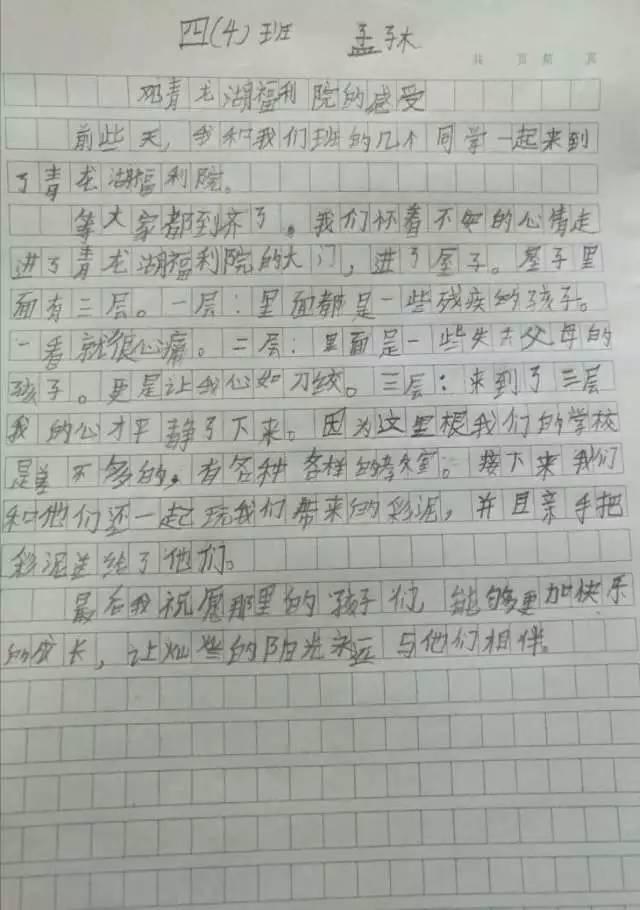 四(4)班 孟球
共 页 第 页
邓青龙湖福利院的感受
前些天，我和我们班的几个同学一起来到
了青龙湖福利院。
等大家都到济了。我们怀着不安的心情走
进了青龙湖福利院的大门，进了屋子。屋子里
面有三层。一层：里面都是一些残疾的孩子。
一看就很心痛。二层：里面是一些失去父母的
孩子。更是让我心如刀绞。三层：来到了三层
我的心才平静了下来。因为这里根我们的学校
是差不多的，有各种各样的教室。接下来我们
和他们还一起玩我们带来的彩泥，并且亲手把
彩泥送给了他们。
最后我祝愿那里的孩子们，能够更加快乐
的成长，让灿烂的阳光永远与他们相伴。